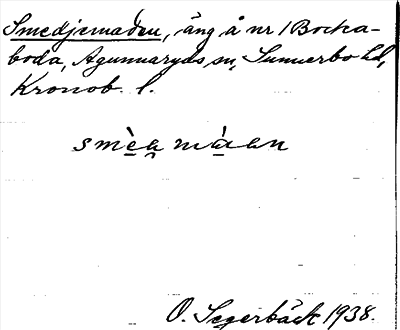 Smedjemaden, äng å nr 1 Bocka-
boda, Agunnaryds sn, Sunnerbo hd,
Kronob. l.
smèa màan
O. Segerbäck 1938.